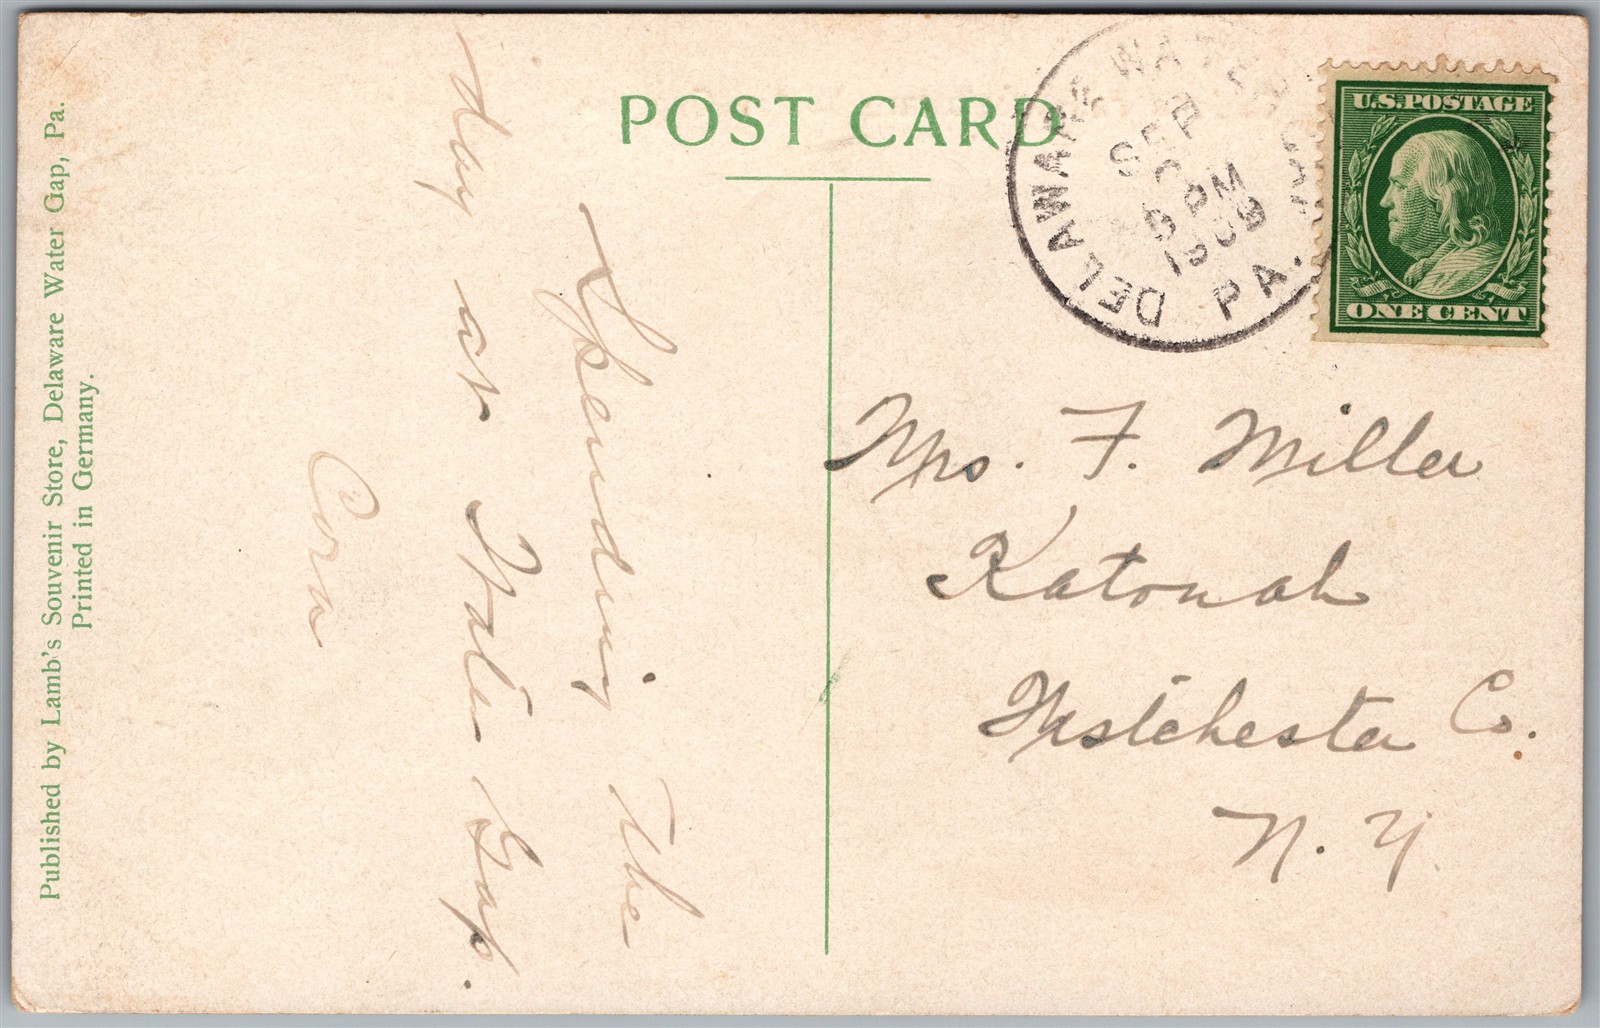 POST CARD
DELAWARE WATER GAP
PA.
SEP
PM
1909
U.S. POSTAGE
ONE CENT
Spending the
day at Water Gap.
Cora
Mrs. F. Miller
Katonah
Westchester Co.
N. Y.
Published by Lamb's Souvenir Store, Delaware Water Gap, Pa.
Printed in Germany.